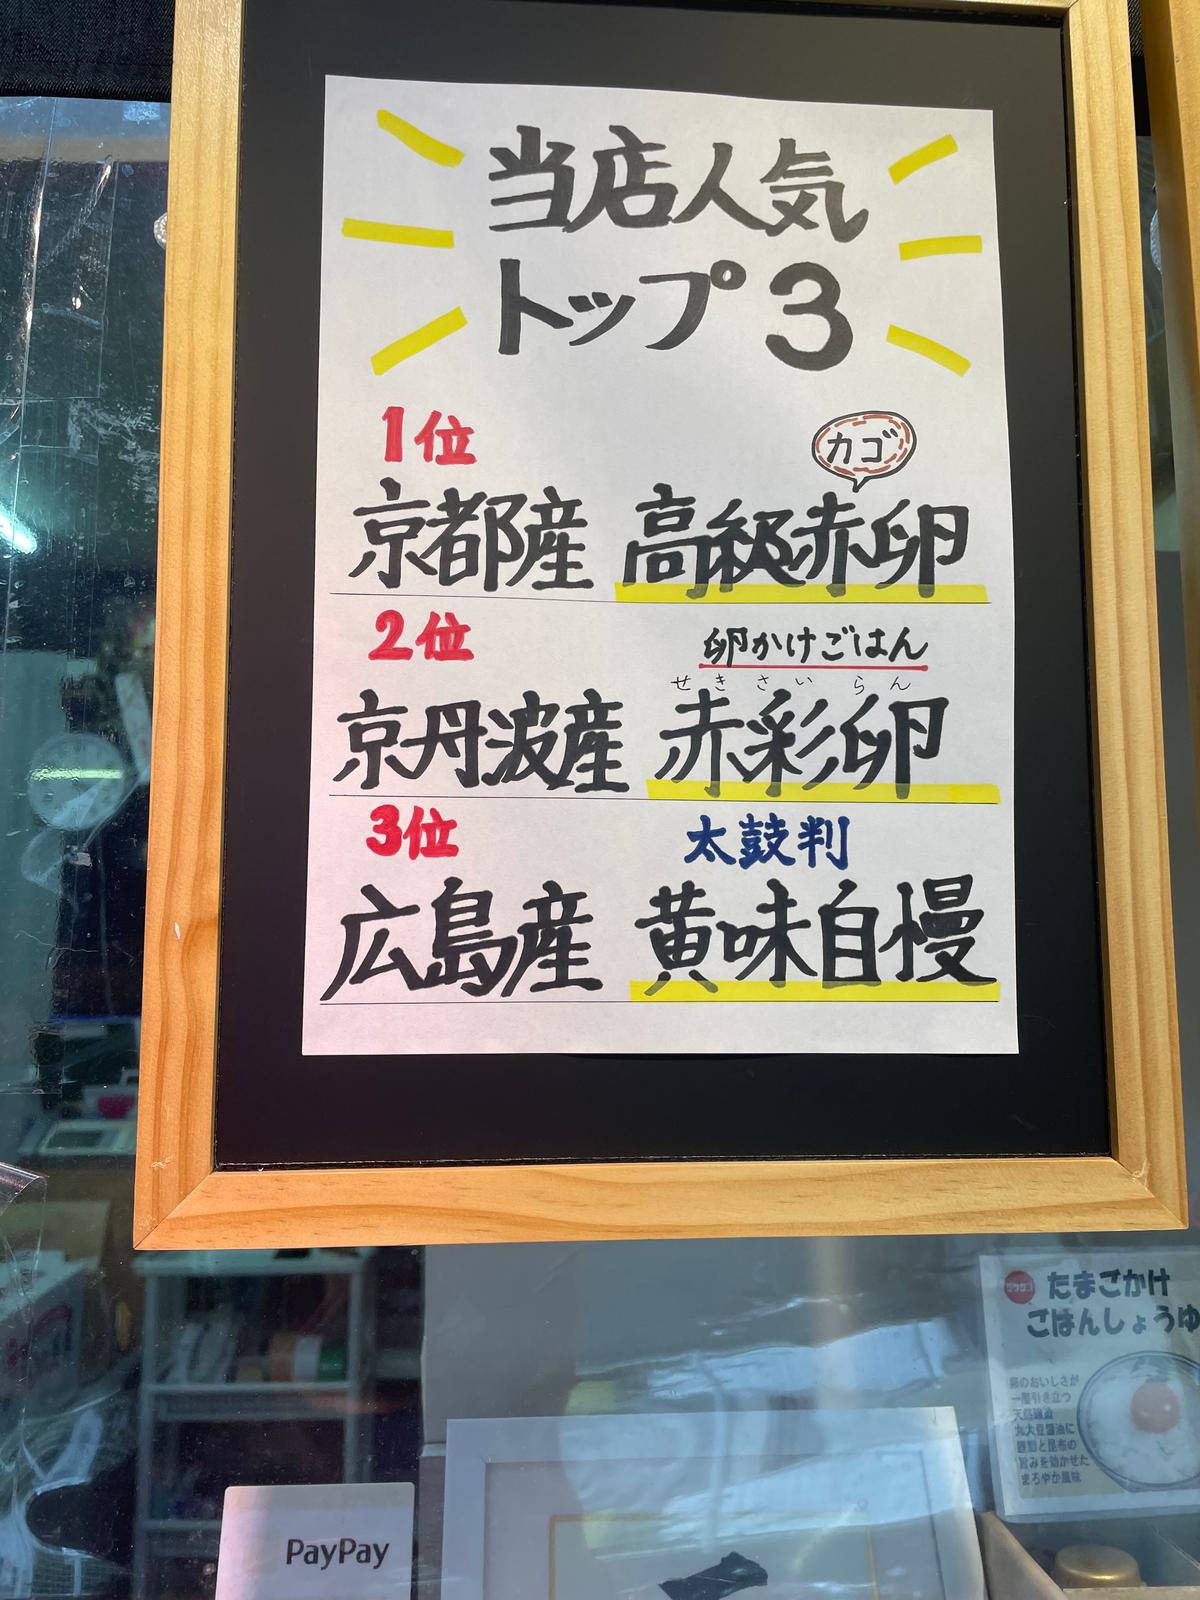 当店人気
トップ3
1位
カゴ
京都産 高級赤卵
2位
卵かけごはん
せきさいらん
京丹波産 赤彩卵
3位
太鼓判
広島産 黄味自慢
たまごかけ
ごはんしょうゆ
卵のおいしさが
一層引き立つ
天然醸造
丸大豆醤油に
鰹節と昆布の
旨みを効かせた
まろやか風味
PayPay